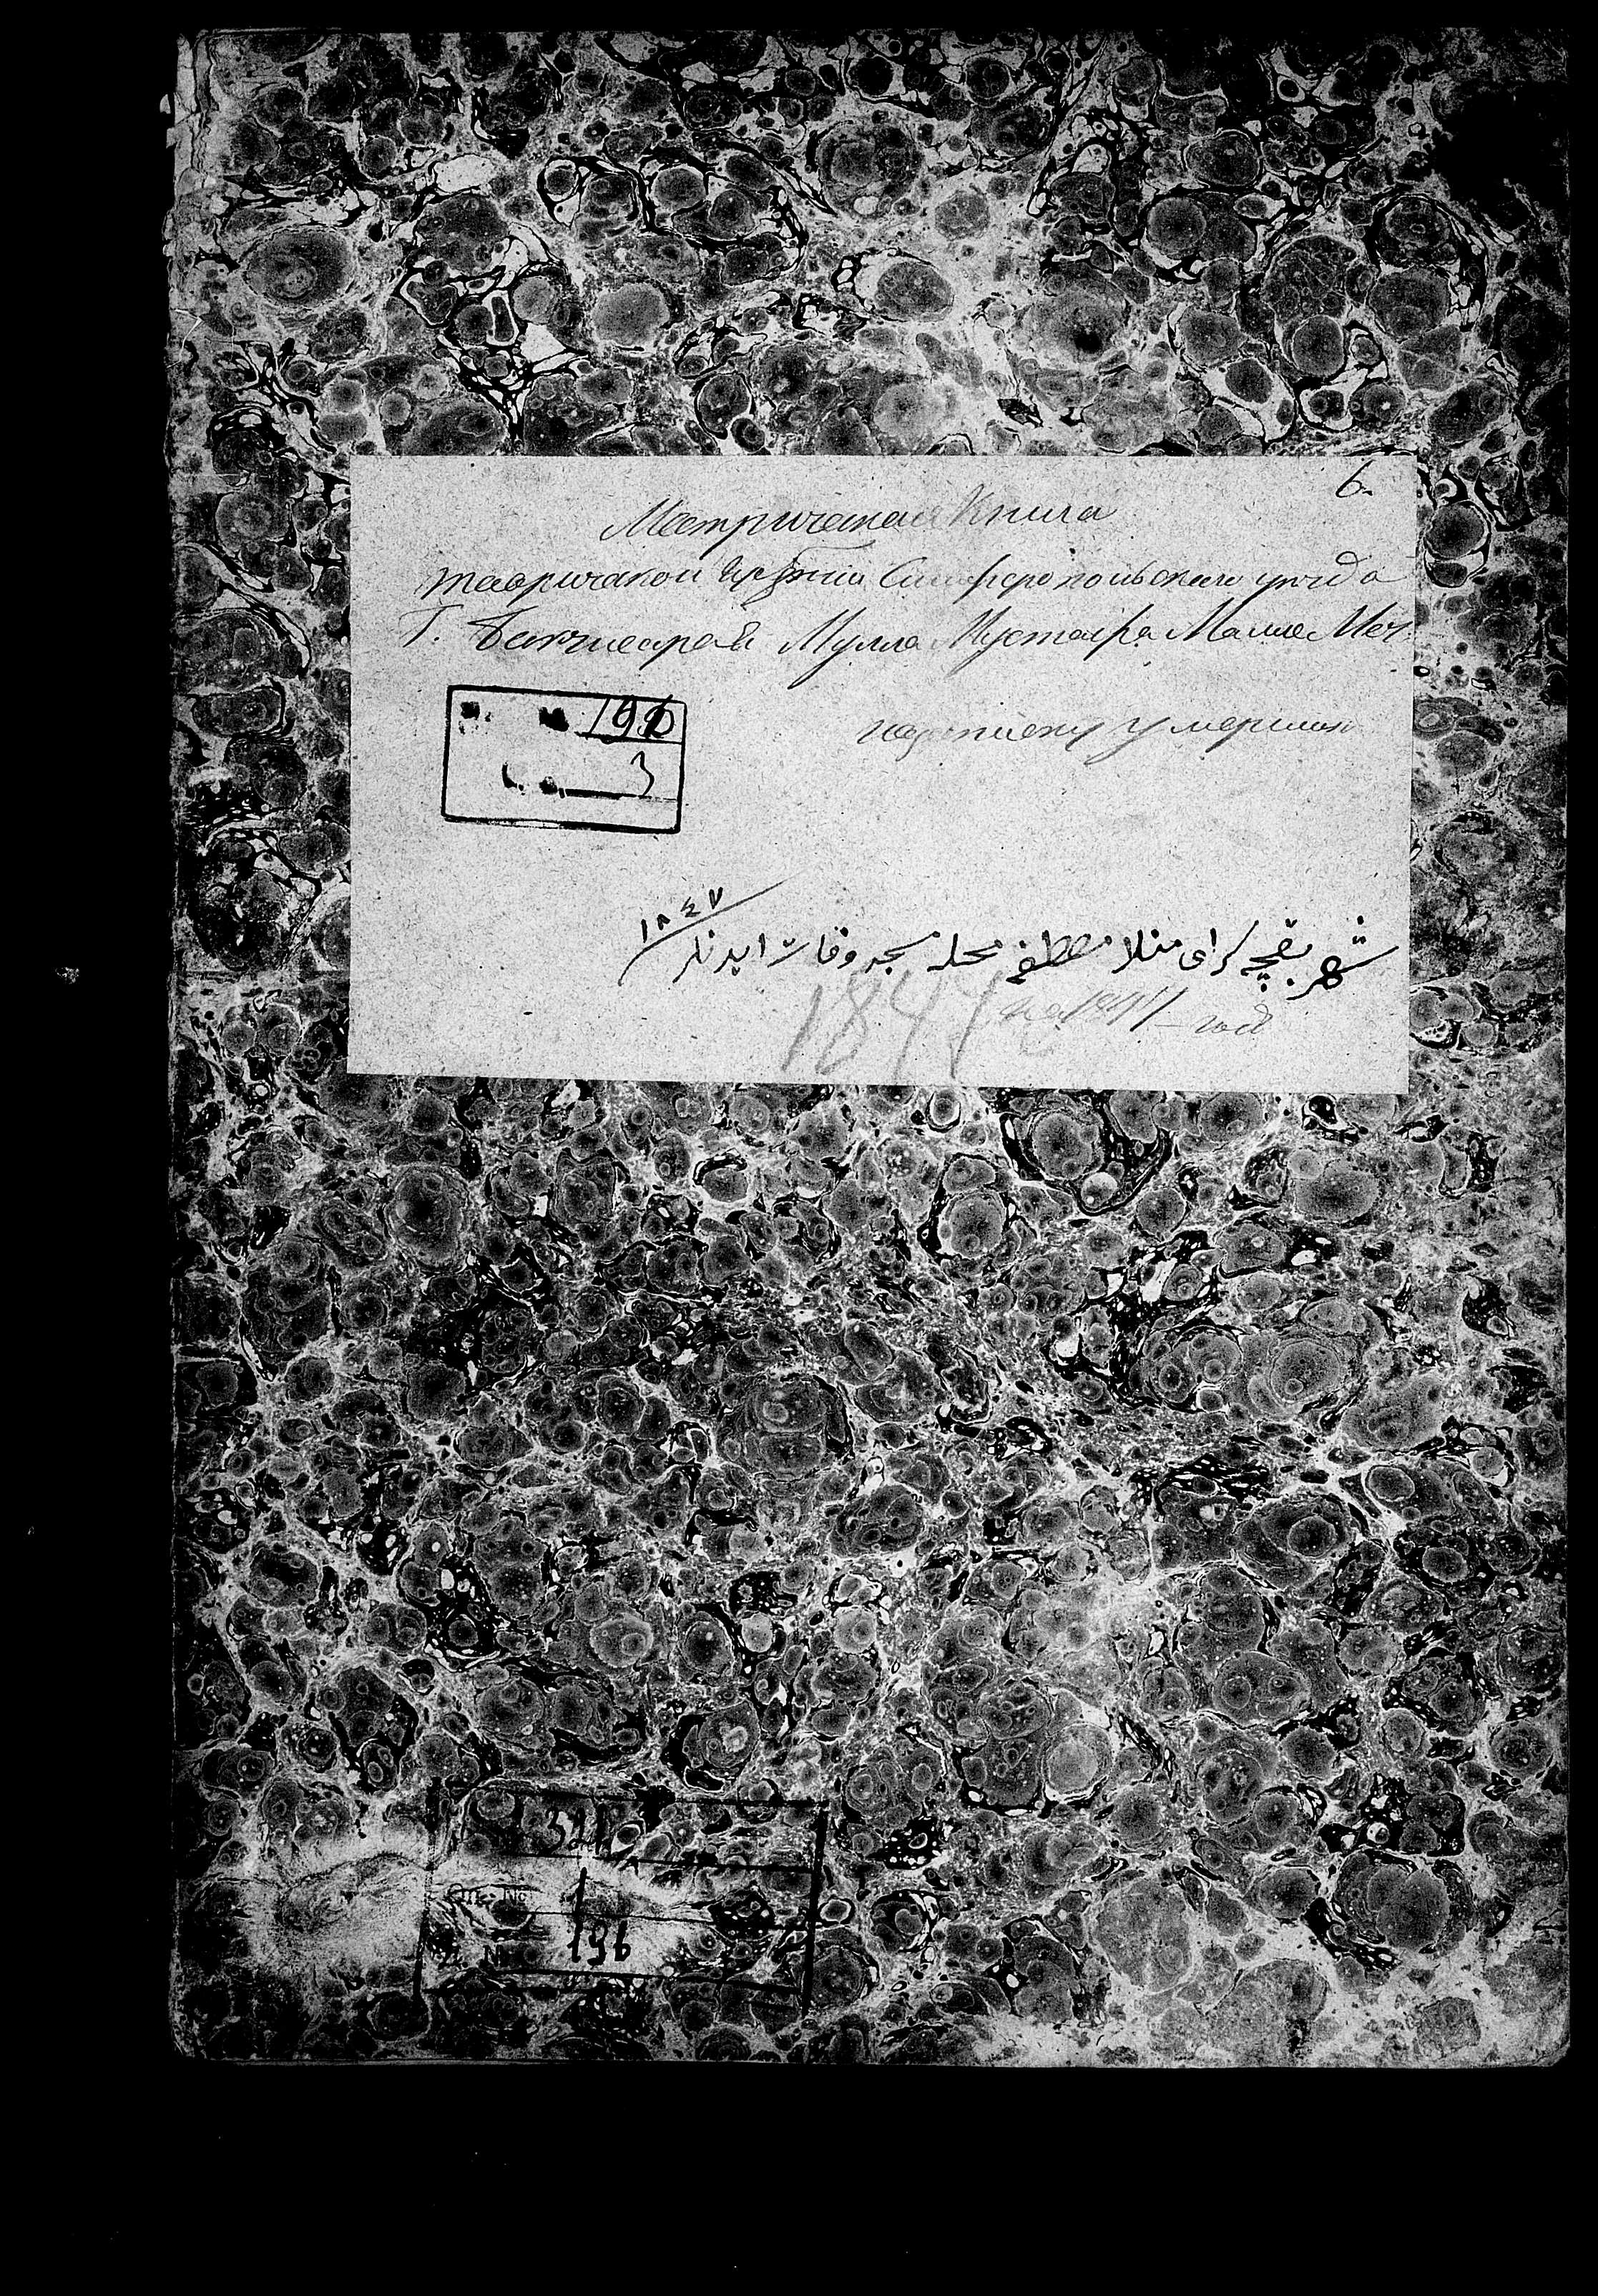 6.
Метрическая Книга
таврической губернии Симферопольского уезда
Г. Бахчисарай Мулла Мустафа Малле Меч.
умерших
196
3
١٨٤٧
شهر بقچه سرای منلا مصطفى محله مسجد وفات ایدنلر
1847 на 1847 год
321
Оп. №
1
196